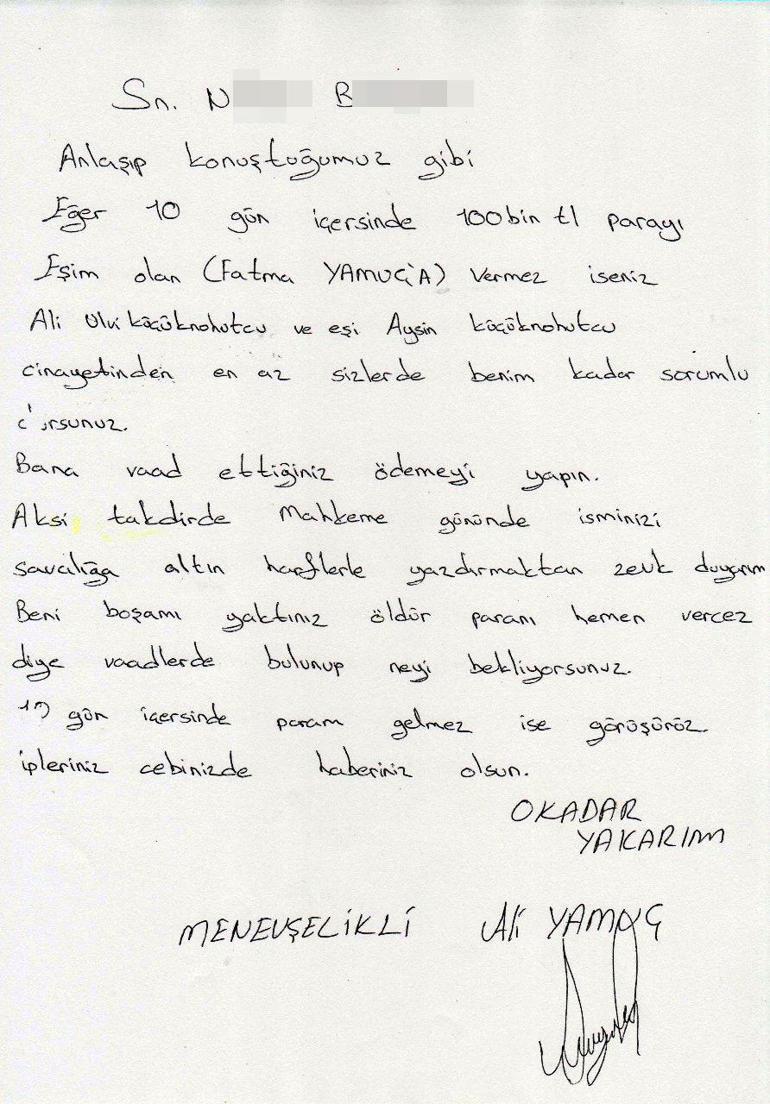 Sn. N B
Anlaşıp konuştuğumuz gibi
Eğer 10 gün içersinde 100bin tl parayı
Eşim olan (Fatma YAMUÇ'A) vermez iseniz
Ali Ulvi küçüknohutcu ve eşi Aysin küçüknohutcu
cinayetinden en az sizlerde benim kadar sorumlu
Bana vaad ettiğiniz ödemeyi yapın.
Aksi takdirde Mahkeme gününde isminizi
savcılığa altın harflerle yazdırmaktan zevk duyarım
Beni boşamı yaktınız öldür paranı hemen vercez
diye vaadlerde bulunup neyi bekliyorsunuz.
10 gün içersinde param gelmez ise görüşürüz.
ipleriniz cebinizde haberiniz olsun.
OKADAR
YAKARIM
MENEVŞELİKLİ Ali YAMUÇ